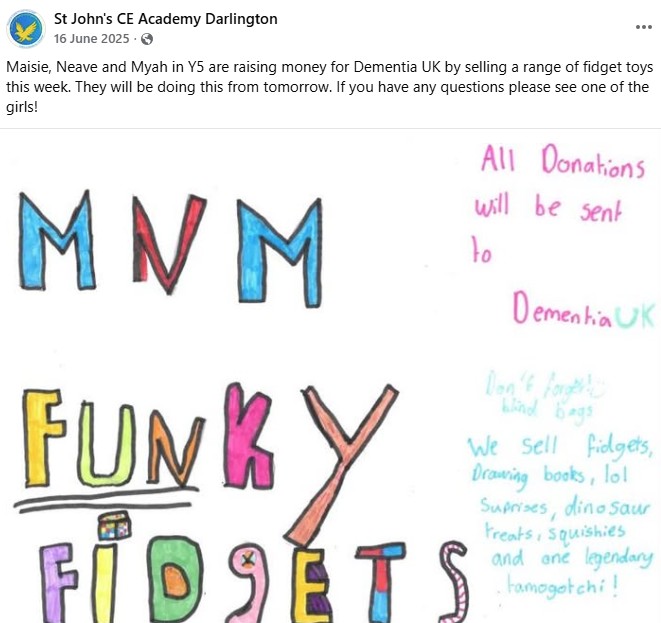 St John's CE Academy Darlington
16 June 2025 ·
Maisie, Neave and Myah in Y5 are raising money for Dementia UK by selling a range of fidget toys
this week. They will be doing this from tomorrow. If you have any questions please see one of the
girls!
All Donations
will be sent
to
Dementia UK
M N M
Don't forget!
blind bags
FUNKY
We sell fidgets,
Drawing books, lol
Suprises, dinosaur
treats, squishies
and one legendary
tamogotchi!
FiDgETS